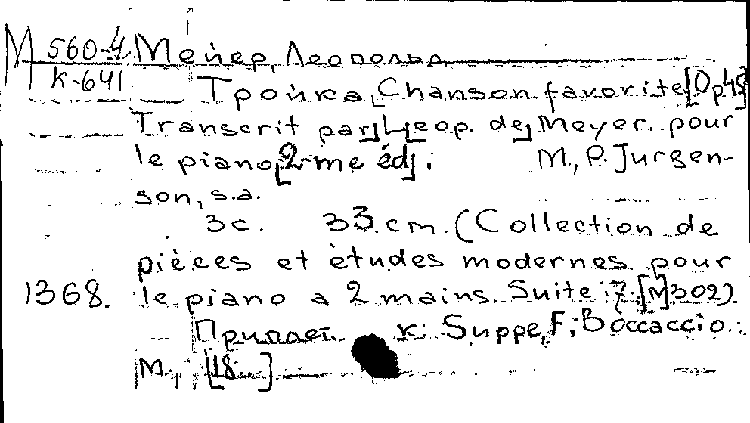 М 560-4 Мейер, Леопольд
К-641
Тройка, Chanson favorite [Op. 45]
Transcrit par Leop. de Meyer pour
le piano [2-me éd]. M., P. Jurgen-
son, s.a.
3с. 33 cm. (Collection de
pièces et études modernes pour
1368. le piano a 2 mains. Suite 7. [M] 302)
Приплет. к: Suppe, F. Boccaccio.
M., [18...]